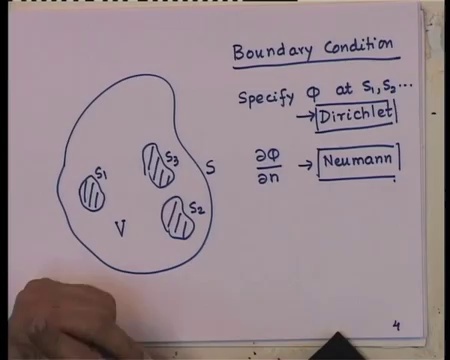 Boundary Condition
Specify Φ at S₁, S₂...
→ Dirichlet
∂Φ/∂n → Neumann
S₁
S₃
S
S₂
V
4